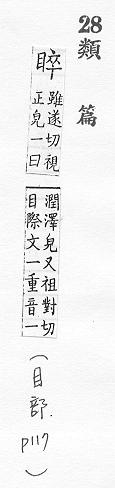 28
類篇
睟
雖遂切視
正皃一曰
潤澤皃又祖對切
目際文一重音一
(目部. p117)